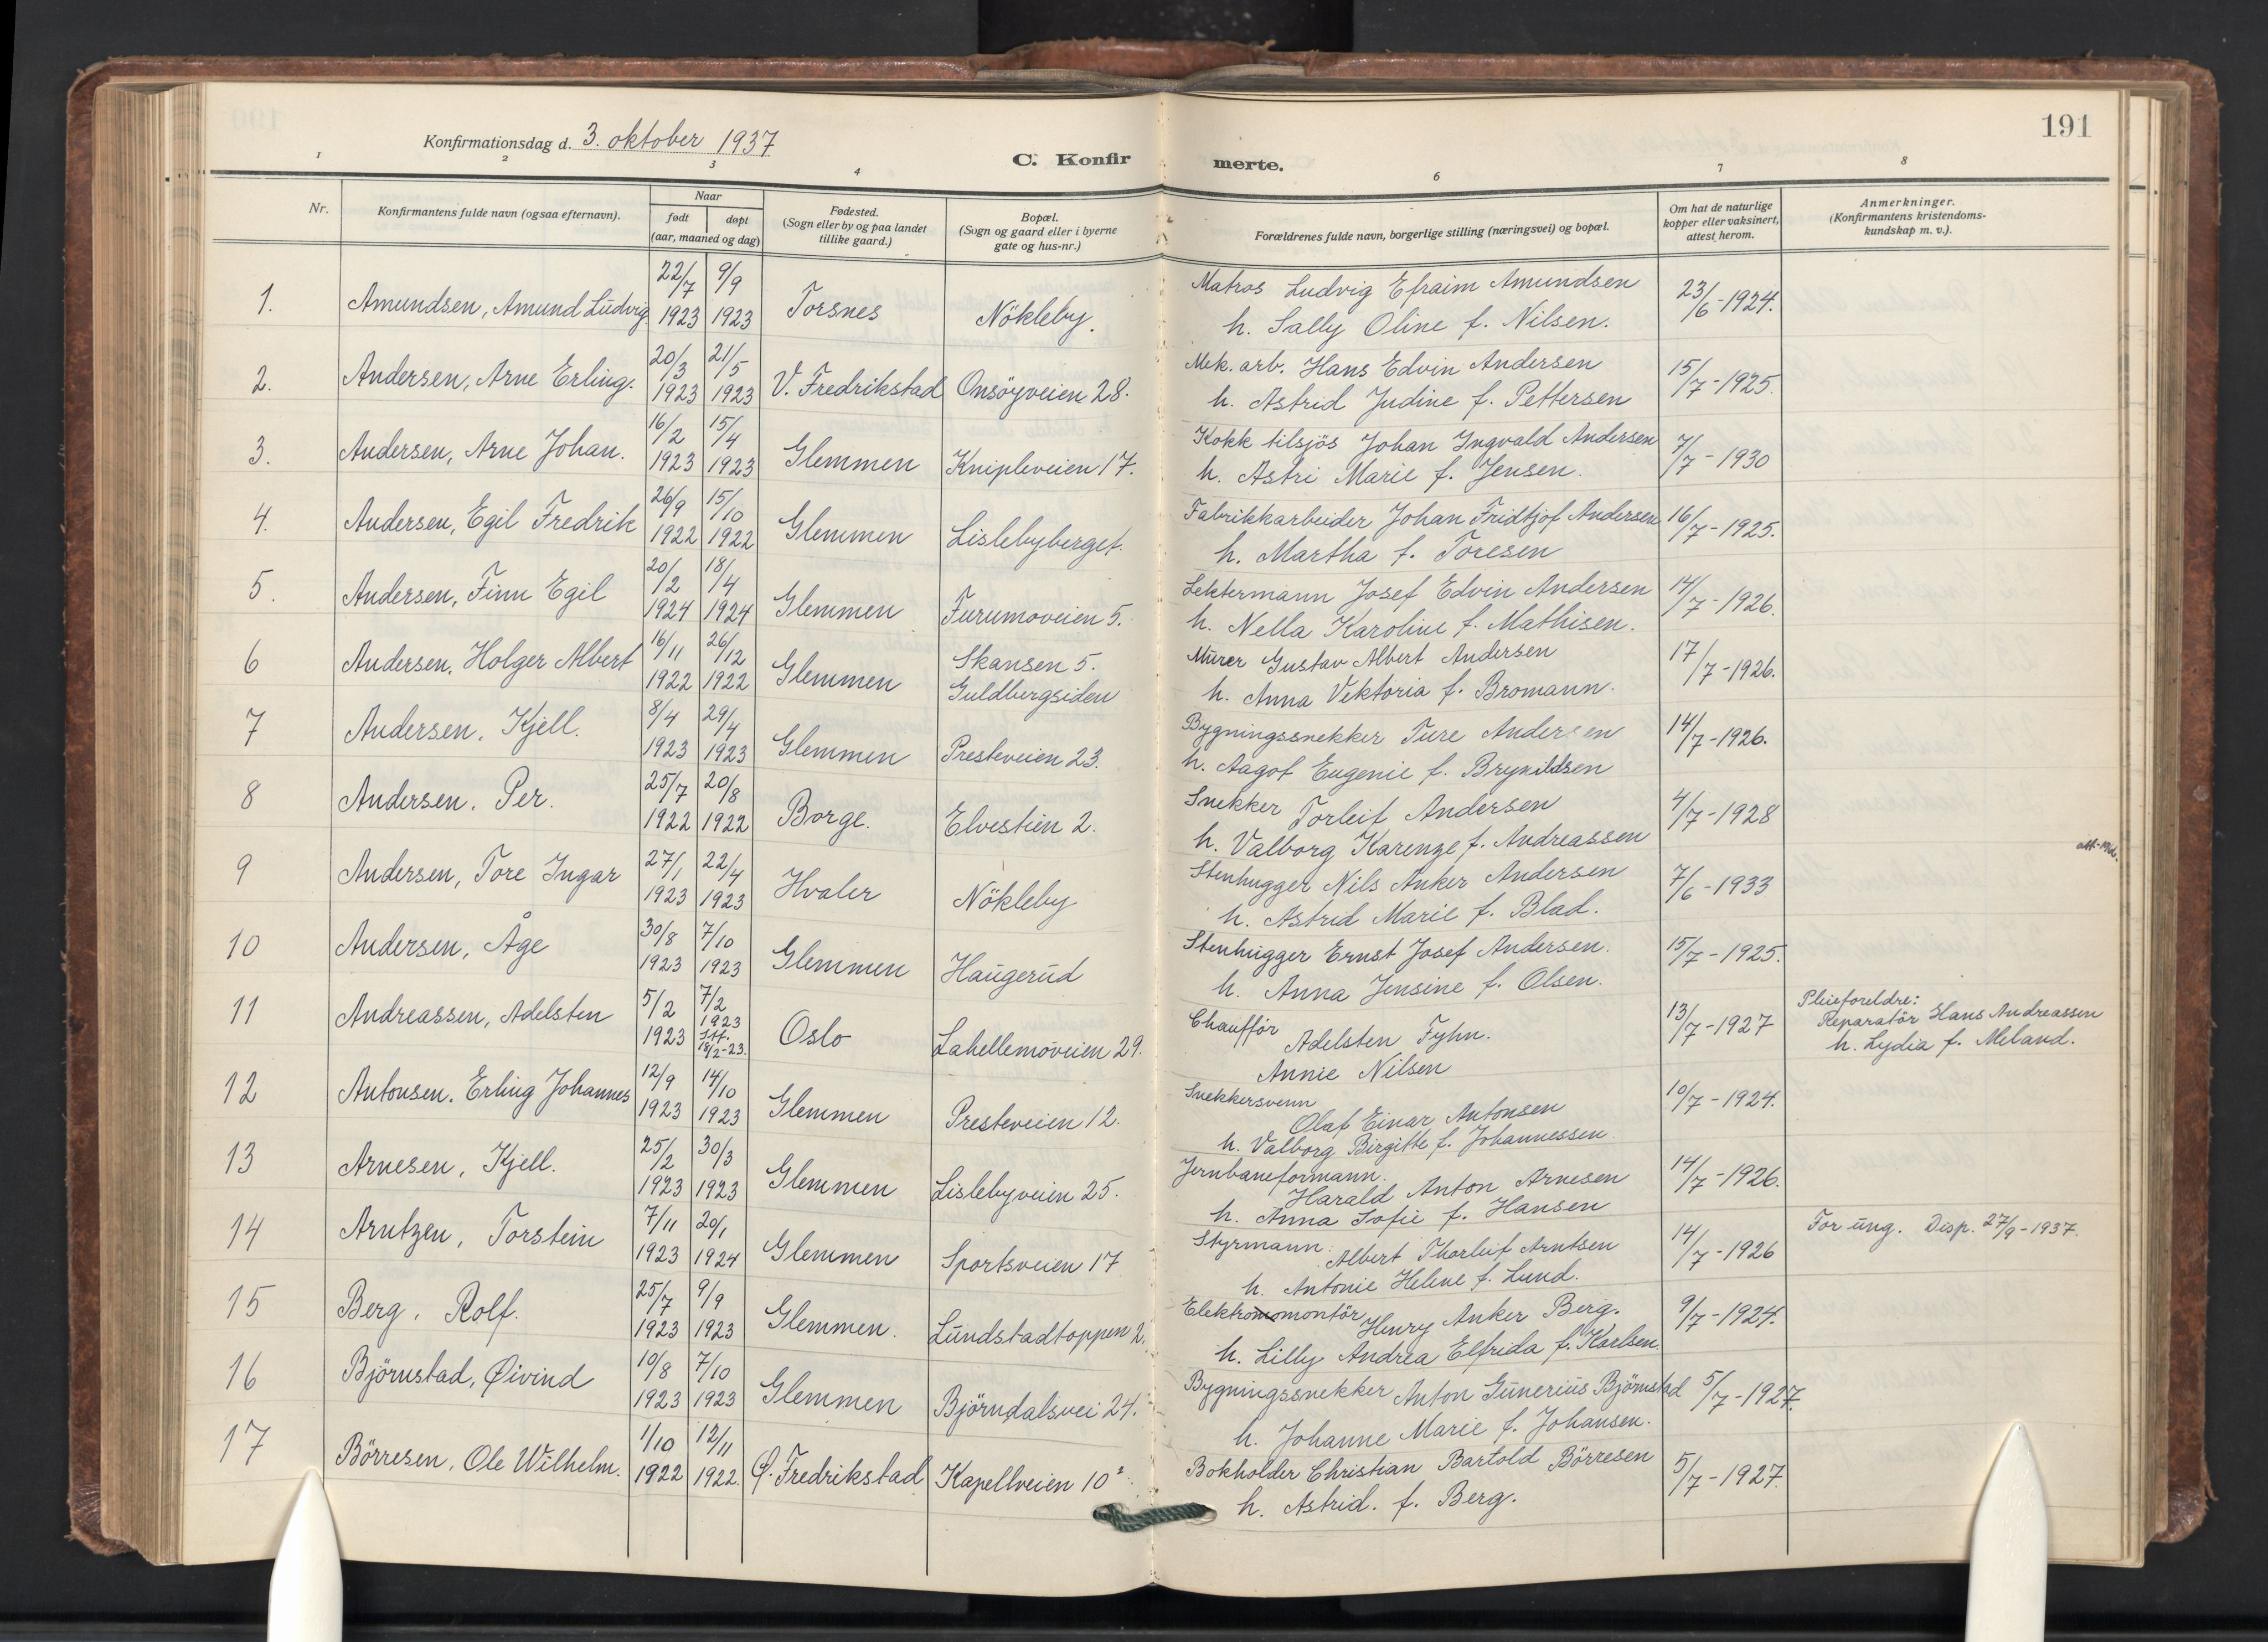 191
Konfirmationsdag d. 3. oktober 1937
C. Konfirmerte.
1 2 3 4 6 7 8
Nr.
Konfirmantens fulde navn (ogsaa efternavn).
Naar
født
døpt
(aar, maaned og dag)
Fødested.
(Sogn eller by og paa landet
tillike gaard.)
Bopæl.
(Sogn og gaard eller i byerne
gate og hus-nr.)
Forældrenes fulde navn, borgerlige stilling (næringsvei) og bopæl.
Om hat de naturlige
kopper eller vaksinert,
attest herom.
Anmerkninger.
(Konfirmantens kristendoms-
kundskap m. v.).
1. Amundsen, Amund Ludvig 22/7 1923 9/9 1923 Torsnes Nökleby. Matros Ludvig Efraim Amundsen 23/6-1924.
h. Sally Oline f. Nilsen.
2. Andersen, Arne Erling. 20/3 1923 21/5 1923 V. Fredrikstad Onsöyveien 28. Mek. arb. Hans Edvin Andersen 15/7-1925.
h. Astrid Judine f. Pettersen
3. Andersen, Arne Johan. 16/2 1923 15/4 1923 Glemmen Knipleveien 17. Kokk tilsjös Johan Ingvald Andersen 7/7-1930
h. Astri Marie f. Jensen.
4. Andersen, Egil Fredrik 26/9 1922 15/10 1922 Glemmen Lislebyberget. Fabrikkarbeider Johan Fridtjof Andersen 16/7-1925.
h. Martha f. Toresen
5. Andersen, Finn Egil 20/2 1924 18/4 1924 Glemmen Furumoveien 5. Lektermann Josef Edvin Andersen 14/7-1926.
h. Nella Karoline f. Mathisen.
6 Andersen, Holger Albert 16/11 1922 26/12 1922 Glemmen Skansen 5. Murer Gustav Albert Andersen 17/7-1926.
Guldbergsiden h. Anna Vektoria f. Bromann.
7 Andersen, Kjell. 8/4 1923 29/4 1923 Glemmen Presteveien 23. Bygningssnekker Ture Andersen 14/7-1926.
h. Aagot Eugenie f. Brynildsen
8 Andersen, Per. 25/7 1922 20/8 1922 Borge. Elvestien 2. Snekker Torleif Andersen 4/7-1928
h. Valborg Karenze f. Andreassen
9 Andersen, Tore Ingar 27/1 1923 22/4 1923 Hvaler Nökleby Stenhugger Nils Anker Andersen 7/6-1933
h. Astrid Marie f. Blad.
10 Andersen, Åge 30/8 1923 7/10 1923 Glemmen Haugerud Stenhugger Ernst Josef Andersen. 15/7-1925.
h. Anna Jensine f. Olsen.
11 Andreassen, Adelsten 5/2 1923 7/2 1923 Stf. 18/2-23. Oslo Lahellemoveien 29. Chaufför Adelsten Fyhn. 13/7-1927 Pleieforeldre:
Annie Nilsen Reparatör Hans Andreassen
h. Lydia f. Meland.
12 Antonsen, Erling Johannes 12/9 1923 14/10 1923 Glemmen Presteveien 12. Snekkersvenn Olaf Einar Antonsen 10/7-1924.
h. Valborg Birgitte f. Johannessen
13 Arnesen, Kjell. 25/2 1923 30/3 1923 Glemmen Lislebyveien 25. Jernbaneformann. Harald Anton Arnesen 14/7-1926.
h. Anna Sofie f. Hansen
14 Arntzen, Torstein 7/11 1923 20/1 1924 Glemmen Sportsveien 17 Styrmann. Albert Thorleif Arntsen 14/7-1926 For ung. Disp. 27/9-1937.
h. Antonie Helene f. Lund.
15 Berg, Rolf. 25/7 1923 9/9 1923 Glemmen. Lundstadtoppen 2. Elektromontör Henry Anker Berg. 9/7-1924.
h. Lilly Andrea Elfrida f. Karlsen.
16 Björnstad, Øivind 10/8 1923 7/10 1923 Glemmen Björndalsvei 24. Bygningssnekker Anton Gunerius Björnstad 5/7-1927.
h. Johanne Marie f. Johansen.
17 Börresen, Ole Wilhelm. 1/10 1922 12/11 1922. Ø. Fredrikstad Kapellveien 10² Bokholder Christian Bartold Börresen 5/7-1927.
h. Astrid. f. Berg.